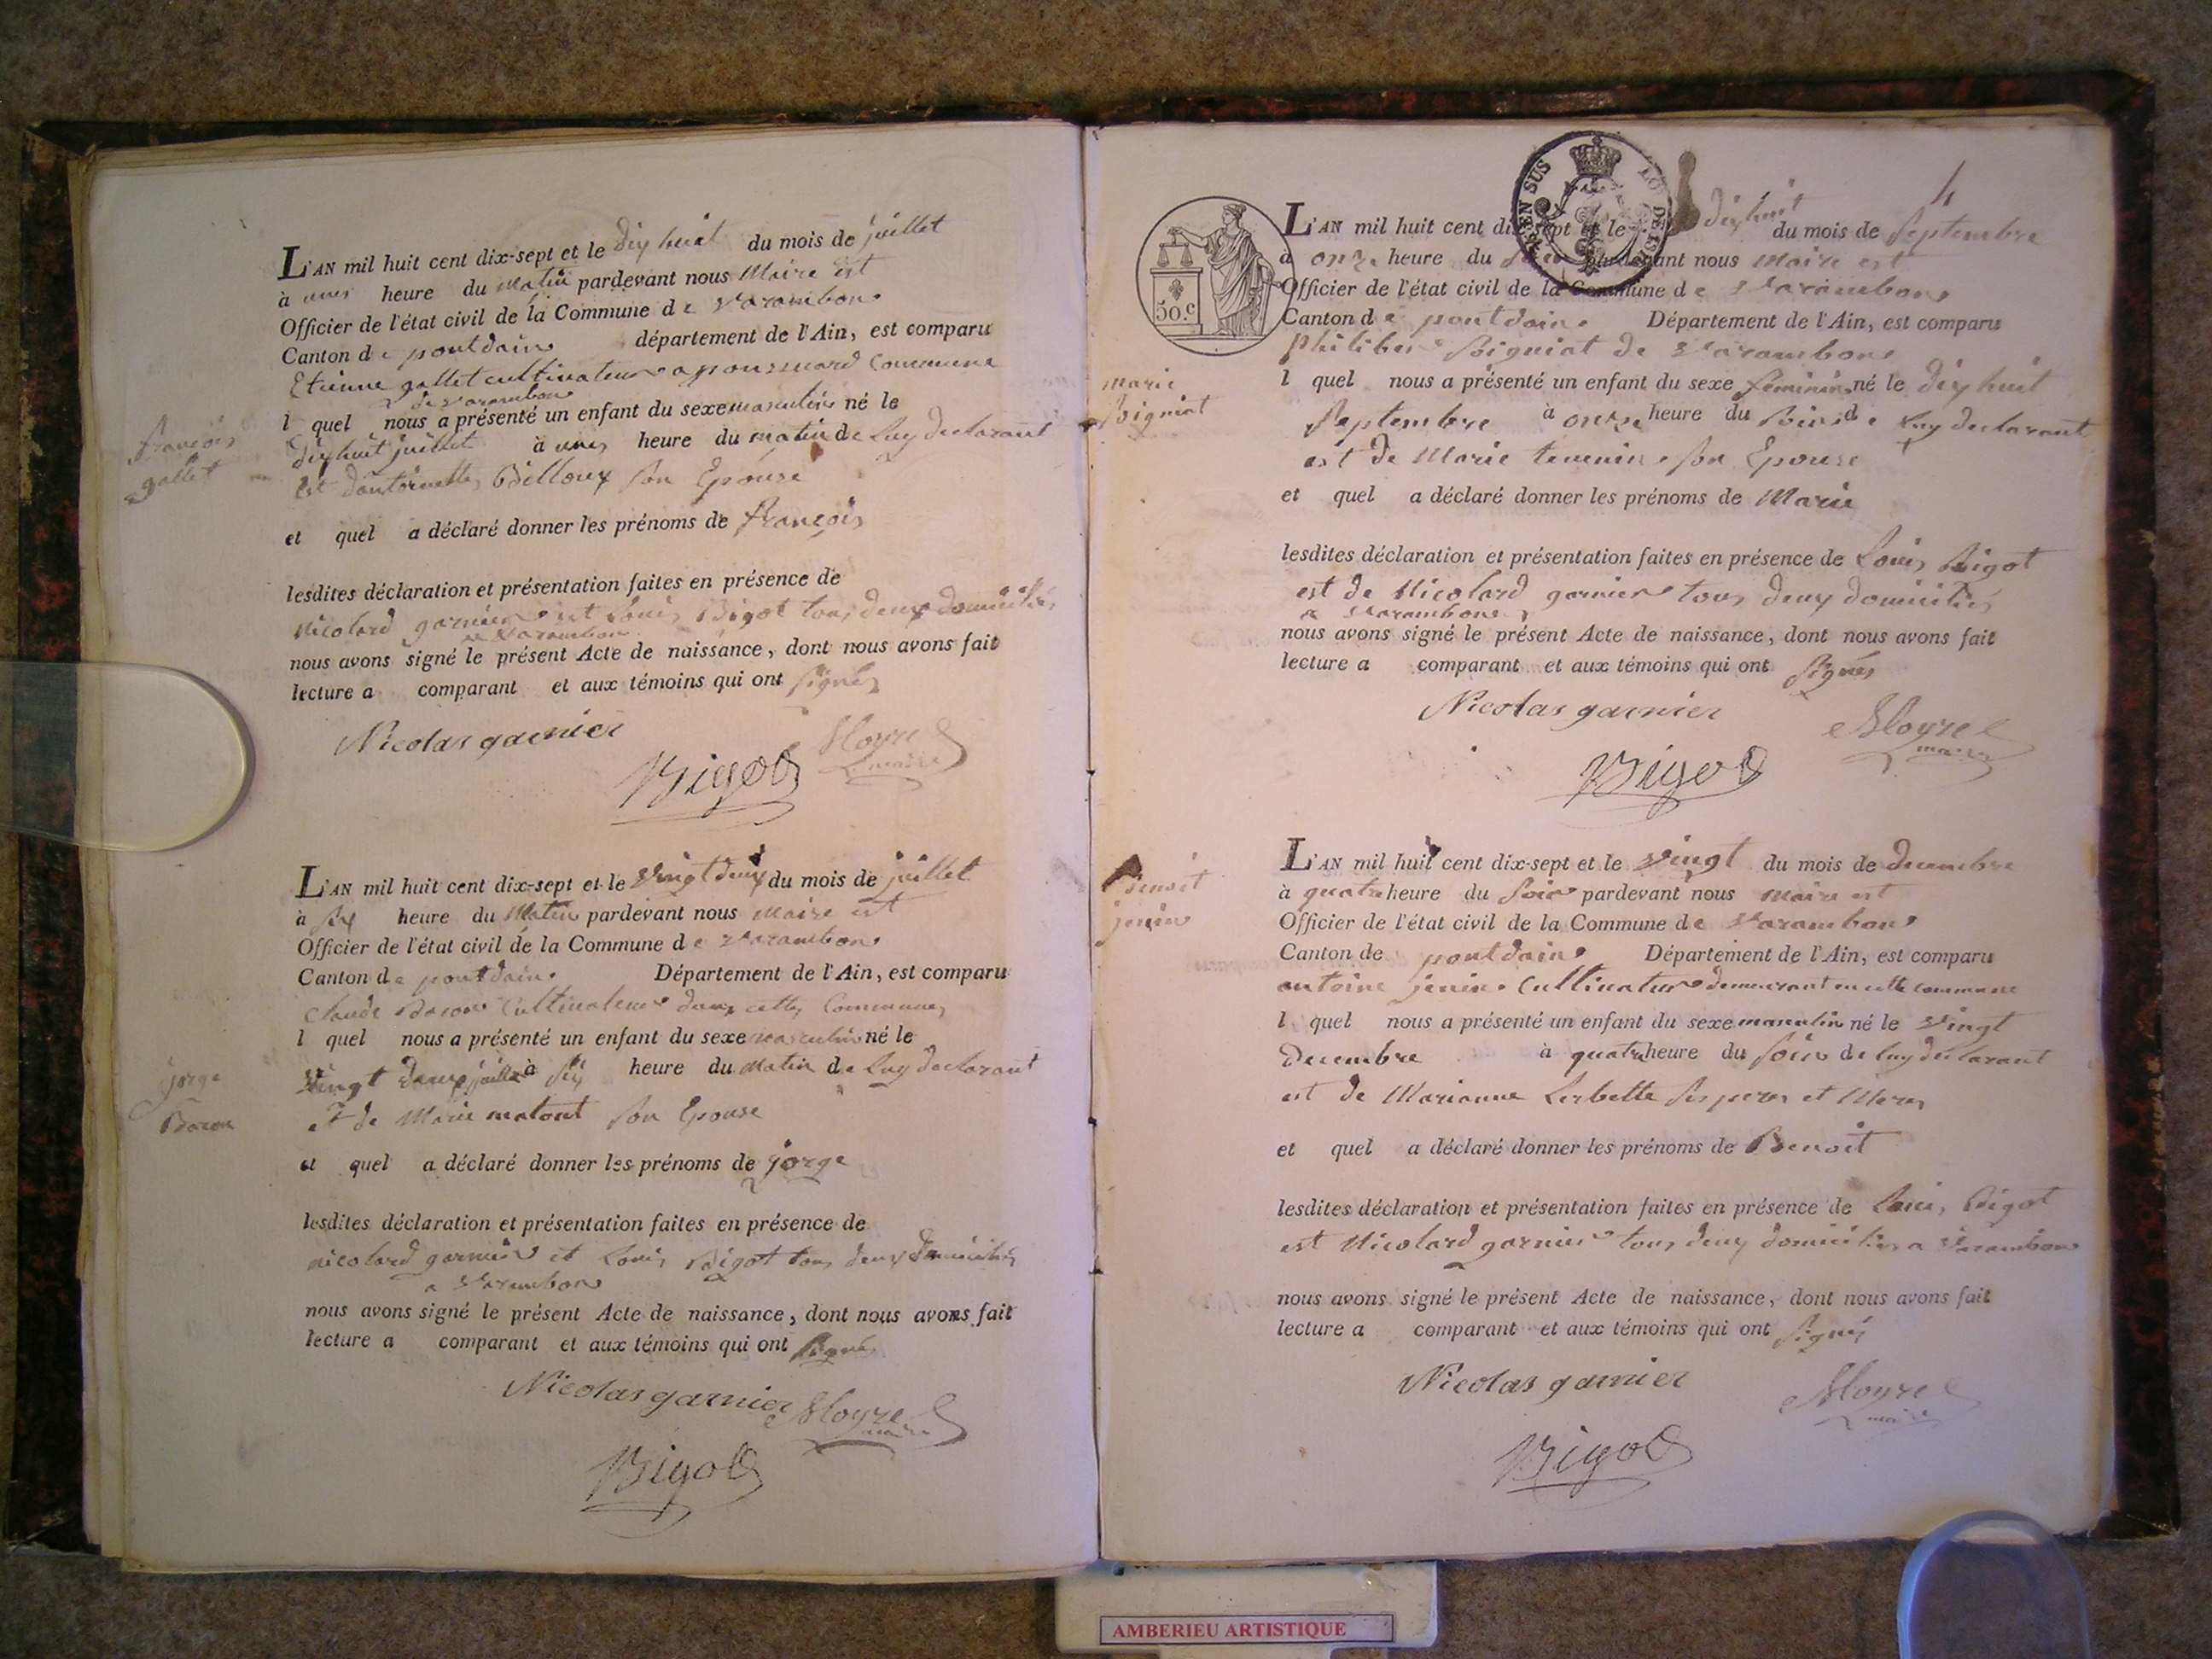 L'AN mil huit cent dix-sept et le dix huit du mois de juillet
à unes heure du matin pardevant nous Maire est
Officier de l'état civil de la Commune de varambons
Canton de pontdains département de l'Ain, est comparu
Etienne gallet cultivateur a commune
de varambon
l quel nous a présenté un enfant du sexe masculin né le
françois
gallet
dix huit juillet à unes heure du matin de luy declarant
est d'antoinette Billoux son Epouse
et quel a déclaré donner les prénoms de françois
lesdites déclaration et présentation faites en présence de
nicolard garnier est Louis Bigot tous deux domiciliés
a varambon
nous avons signé le présent Acte de naissance, dont nous avons fait
lecture a comparant et aux témoins qui ont signés
Nicolas garnier
Bigot
maire
L'AN mil huit cent dix-sept et le vingt deux du mois de juillet
à six heure du Matin pardevant nous maire est
Officier de l'état civil de la Commune de varambons
Canton de pontdains Département de l'Ain, est comparu
Claude Bacon Cultivateur dans cette Commune
l quel nous a présenté un enfant du sexe masculin né le
vingt deux juillet à six heure du matin de luy declarant
gorge
Bacon
et de Marie matout son Epouse
et quel a déclaré donner les prénoms de gorge
lesdites déclaration et présentation faites en présence de
nicolard garnier et Louis Bigot tous deux domiciliés
a varambon
nous avons signé le présent Acte de naissance, dont nous avons fait
lecture a comparant et aux témoins qui ont signés
Nicolas garnier
maire
Bigot
4
50.c
L'AN mil huit cent dix-sept et le dix huit du mois de Septembre
à onze heure du soir pardevant nous maire est
Officier de l'état civil de la Commune de varambons
Canton de pontdains Département de l'Ain, est comparu
philibert Poigniat de varambons
marie
Poigniat
l quel nous a présenté un enfant du sexe féminin né le dix huit
Septembre à onze heure du soir de luy declarant
est de Marie tevenin son Epouse
et quel a déclaré donner les prénoms de Marie
lesdites déclaration et présentation faites en présence de Louis Bigot
est de Nicolard garnier tous deux domiciliés
a varambons
nous avons signé le présent Acte de naissance, dont nous avons fait
lecture a comparant et aux témoins qui ont signés
Nicolas garnier
maire
Bigot
L'AN mil huit cent dix-sept et le vingt du mois de decembre
à quatre heure du soir pardevant nous maire est
Benoit
jenin
Officier de l'état civil de la Commune de varambons
Canton de pontdains Département de l'Ain, est comparu
antoine jenin Cultivateur demeurant en cette commune
l quel nous a présenté un enfant du sexe masculin né le vingt
decembre à quatre heure du soir de luy declarant
est de Marianne Lerbette ses peres et Meres
et quel a déclaré donner les prénoms de Benoit
lesdites déclaration et présentation faites en présence de Louis Bigot
est Nicolard garnier tous deux domiciliés a varambons
nous avons signé le présent Acte de naissance, dont nous avons fait
lecture a comparant et aux témoins qui ont signés
Nicolas garnier
maire
Bigot
AMBERIEU ARTISTIQUE